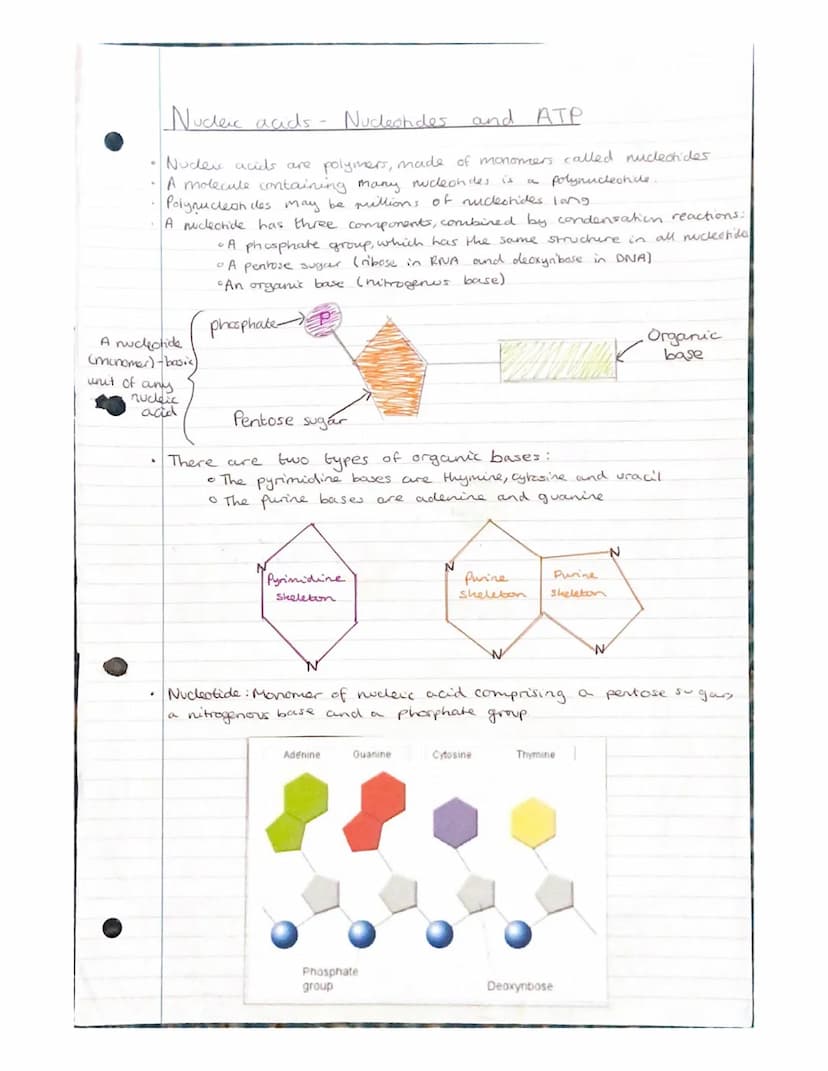 Nucleic acids - Nucleotides and ATP
• Nucleic acids are polymers, made of monomers called nucleotides
• A molecule containing many nucleotides is a polynucleotide.
• Polynucleotides may be millions of nucleotides long
• A nucleotide has three components, combined by condensation reactions:
◦ A phosphate group, which has the same structure in all nucleotides
◦ A pentose sugar (ribose in RNA and deoxyribose in DNA)
◦ An organic base (nitrogenous base)
phosphate
P
Organic
base
A nucleotide
(monomer) - basic
unit of any
nucleic
acid
Pentose sugar
• There are two types of organic bases:
◦ The pyrimidine bases are thymine, cytosine and uracil
◦ The purine bases are adenine and guanine
N
Pyrimidine
skeleton
N
N
Purine
skeleton
N
Purine
skeleton
N
N
• Nucleotide: Monomer of nucleic acid comprising a pentose sugar,
a nitrogenous base and a phosphate group
Adenine Guanine Cytosine Thymine
Phosphate
group
Deoxyribose